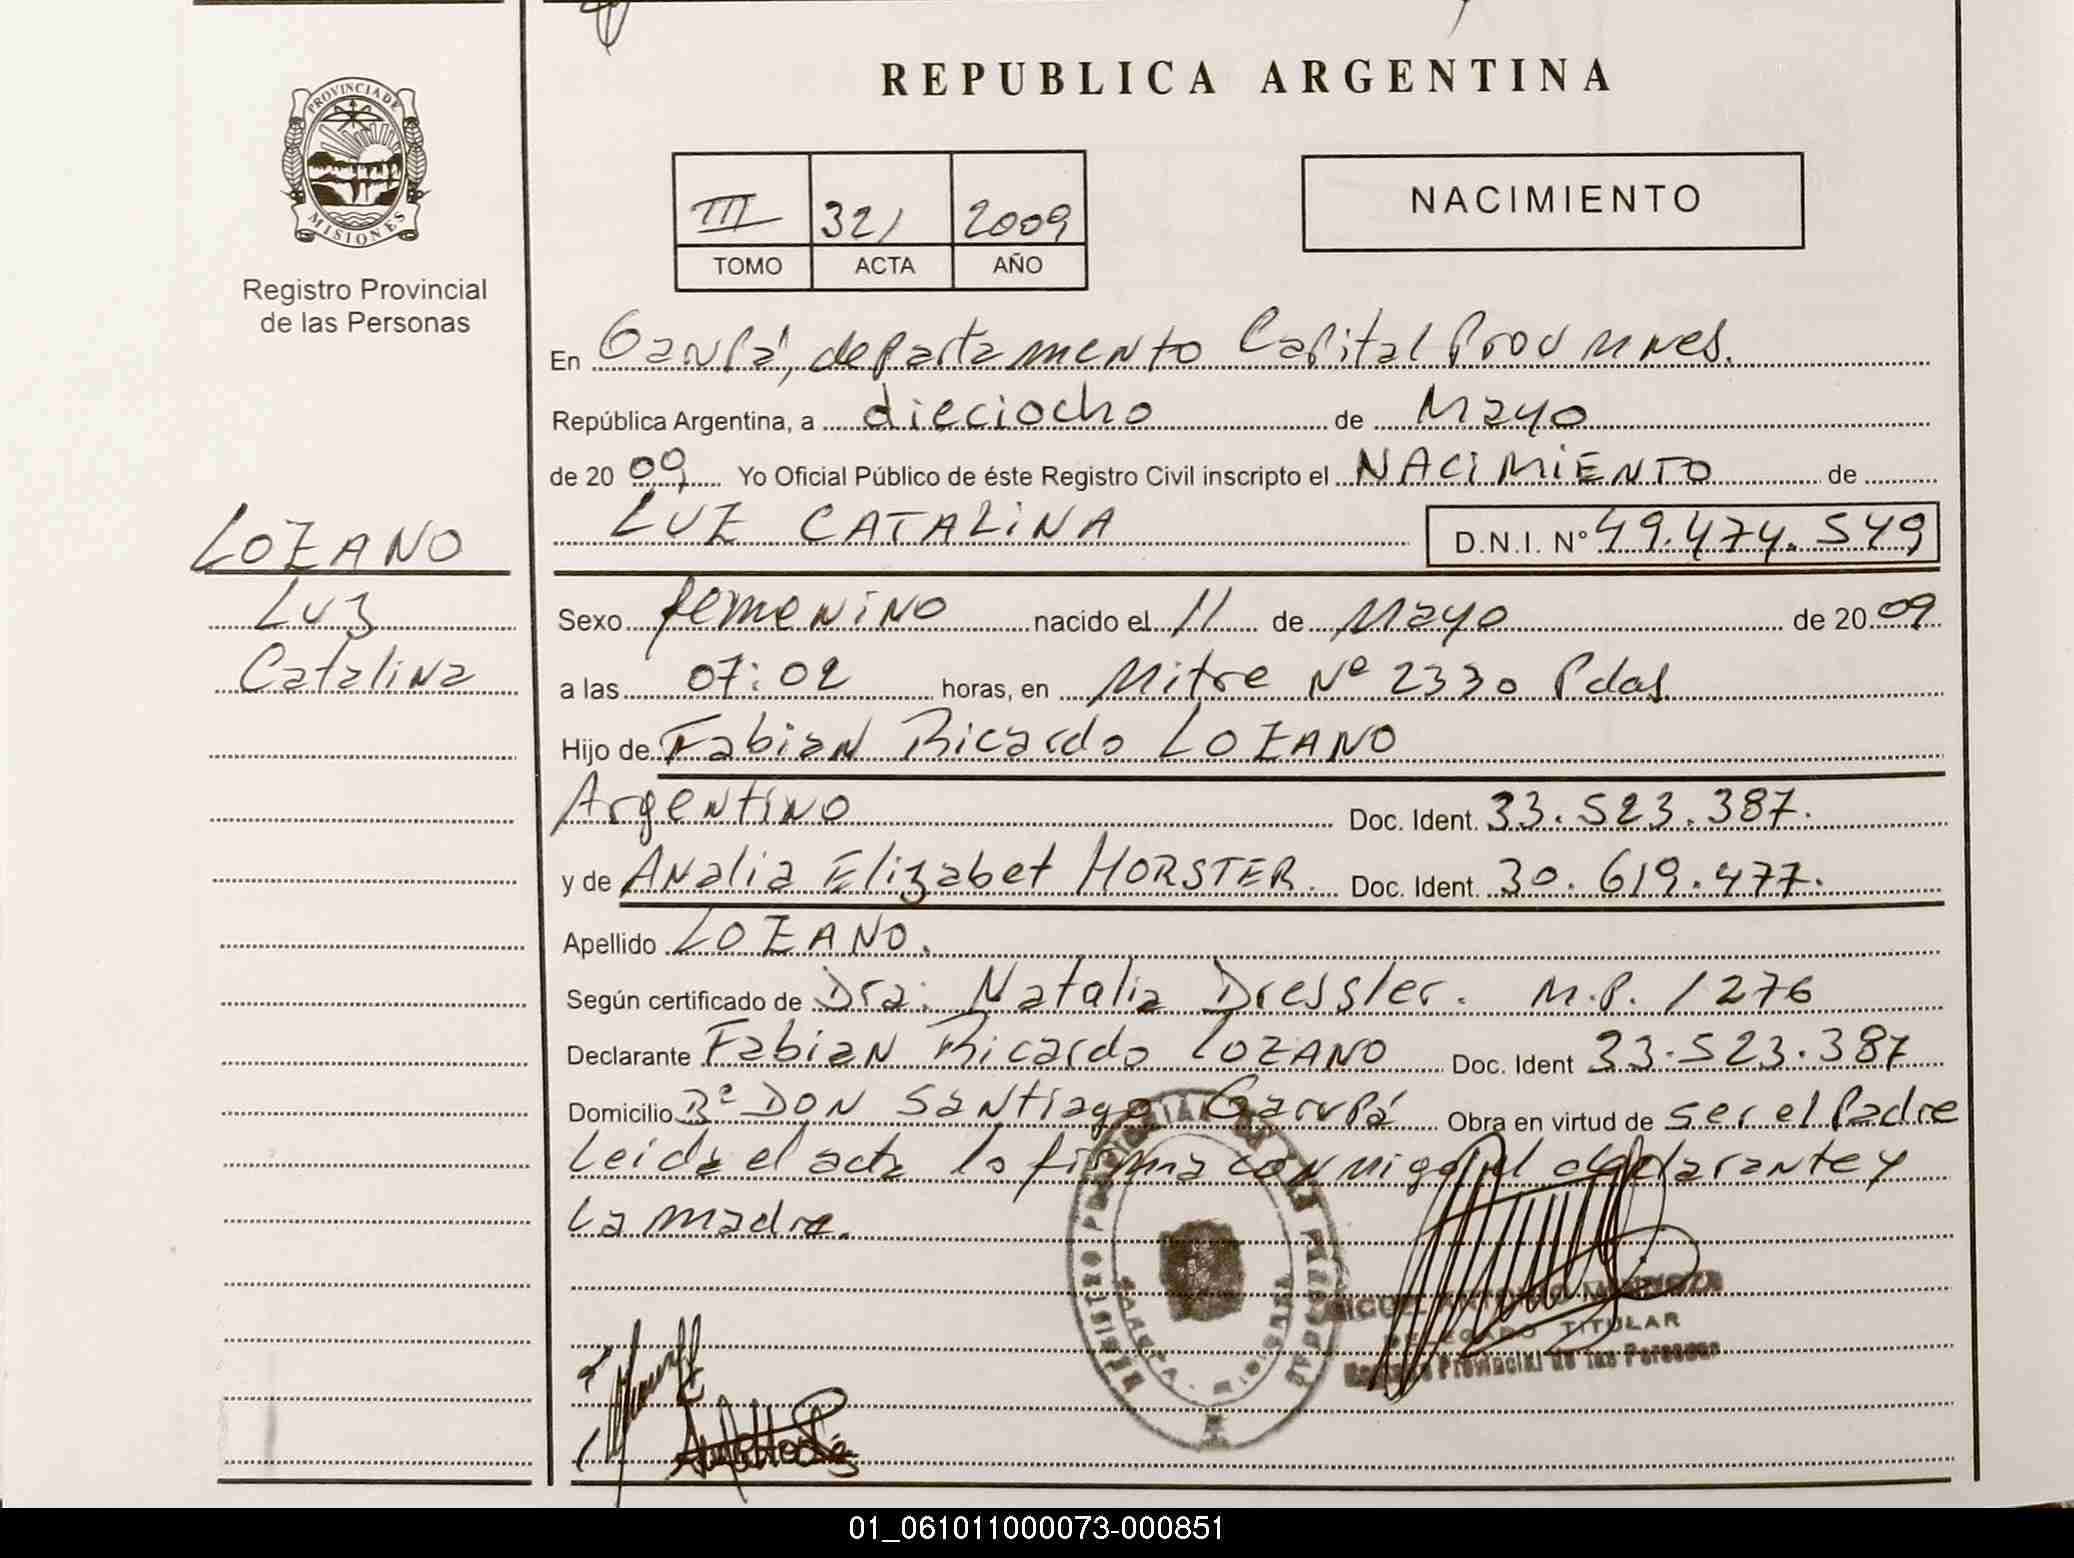 PROVINCIA DE
MISIONES
Registro Provincial
de las Personas
LOZANO
Luz
Catalina
REPUBLICA ARGENTINA
III 321 2009
TOMO ACTA AÑO
NACIMIENTO
En Garupá, departamento Capital Prov Mnes.
República Argentina, a dieciocho de Mayo
de 2009 Yo Oficial Público de éste Registro Civil inscripto el NACIMIENTO de
LUZ CATALINA D.N.I. N° 49.474.549
Sexo femenino nacido el 11 de Mayo de 2009
a las 07:02 horas, en Mitre Nº 2330 Pdas.
Hijo de Fabian Ricardo LOZANO
Argentino Doc. Ident. 33.523.387.
y de Analia Elizabet HORSTER. Doc. Ident. 30.619.477.
Apellido LOZANO.
Según certificado de Dra: Natalia Dressler. M.P. 1276
Declarante Fabian Ricardo LOZANO Doc. Ident 33.523.387
Domicilio Bº DON Santiago Garupá Obra en virtud de ser el Padre
Leida el acta la firma conmigo el declarante y
La madre.
MIGUEL ANTONIO
DELEGADO TITULAR
Registro Provincial de las Personas
01_061011000073-000851